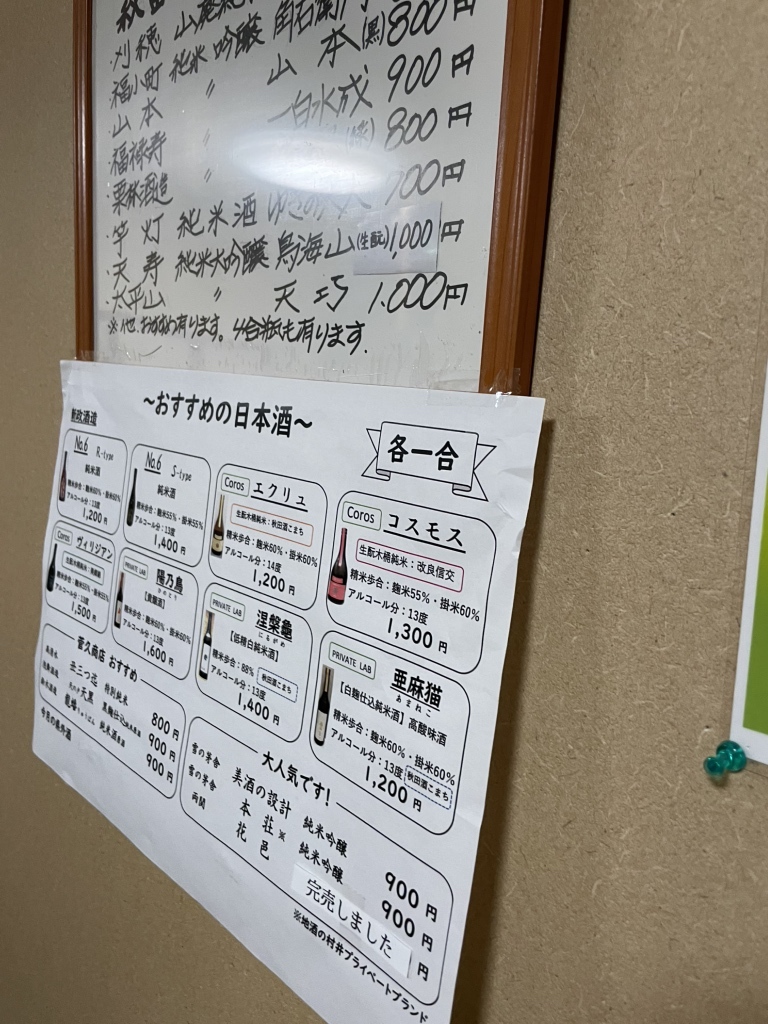 ・刈穂 山廃純 角右衛門 800円
・福小町 純米吟醸 山本(黒) 900円
・山本 〃 一白水成 800円
・福禄寿 〃 900円
・栗林酒造 〃
・竿灯 純米酒
・天寿 純米大吟醸 鳥海山(生酛)1,000円
・太平山 〃 天巧 1,000円
※他、おすすめ有ります。4合瓶も有ります。
〜おすすめの日本酒〜
各一合
新政酒造
No.6 R-type
純米酒
精米歩合：麹米60%・掛米60%
アルコール分：13度
1,200円
No.6 S-type
純米酒
精米歩合：麹米55%・掛米55%
アルコール分：13度
1,400円
Coros エクリュ
生酛木桶純米：秋田酒こまち
精米歩合：麹米60%・掛米60%
アルコール分：14度
1,200円
Coros コスモス
生酛木桶純米：改良信交
精米歩合：麹米55%・掛米60%
アルコール分：13度
1,300円
Coros ヴィリジアン
アルコール分：13度
1,500円
PRIVATE LAB 陽乃鳥
ひのとり
【貴醸酒】
精米歩合：麹米60%・掛米60%
アルコール分：13度
1,600円
PRIVATE LAB 涅槃龜
にるがめ
【低精白純米酒】
精米歩合：88%
アルコール分：13度
秋田酒こまち
1,400円
PRIVATE LAB 亜麻猫
あまねこ
【白麹仕込純米酒】高酸味酒
精米歩合：麹米60%・掛米60%
アルコール分：13度
秋田酒こまち
1,200円
菅久商店 おすすめ
特別純米 800円
天黒 黒麹仕込 900円
純米酒 900円
大人気です！
雪の茅舎 美酒の設計 純米吟醸 900円
雪の茅舎 本荘※ 純米吟醸 900円
両関 花邑 完売しました 円
※地酒の村井プライベートブランド